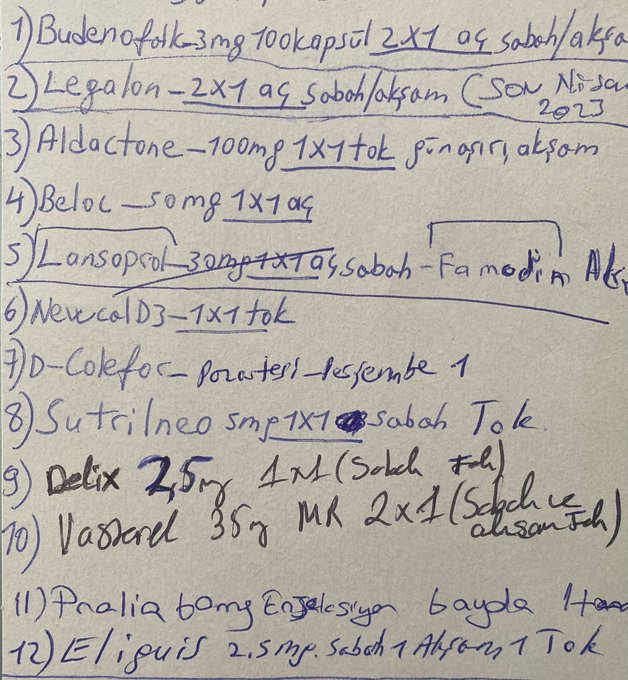 1) Budenofalk-3mg 100kapsül 2x1 aç sabah/akşa
2) Legalon-2x1 aç sabah/akşam (SON Nisa
2023
3) Aldactone-100mg 1x1 tok günaşırı, akşam
4) Beloc-50mg 1x1 aç
5) Lansoprol-30mg 1x1 aç sabah-Famodin Akş
6) Nevucal D3-1x1 tok
7) D-Colefor-Pazartesi-Perşembe 1
8) Sutrilneo 5mg 1x1 sabah Tok
9) Delix 2,5mg 1x1 (Sabah tok)
10) Vastarel 35mg MR 2x1 (Sabah ve
akşam tok)
11) Prolia 60mg Enjeksiyon 6ayda 1
12) Eliquis 2.5mg. Sabah 1 Akşam 1 Tok